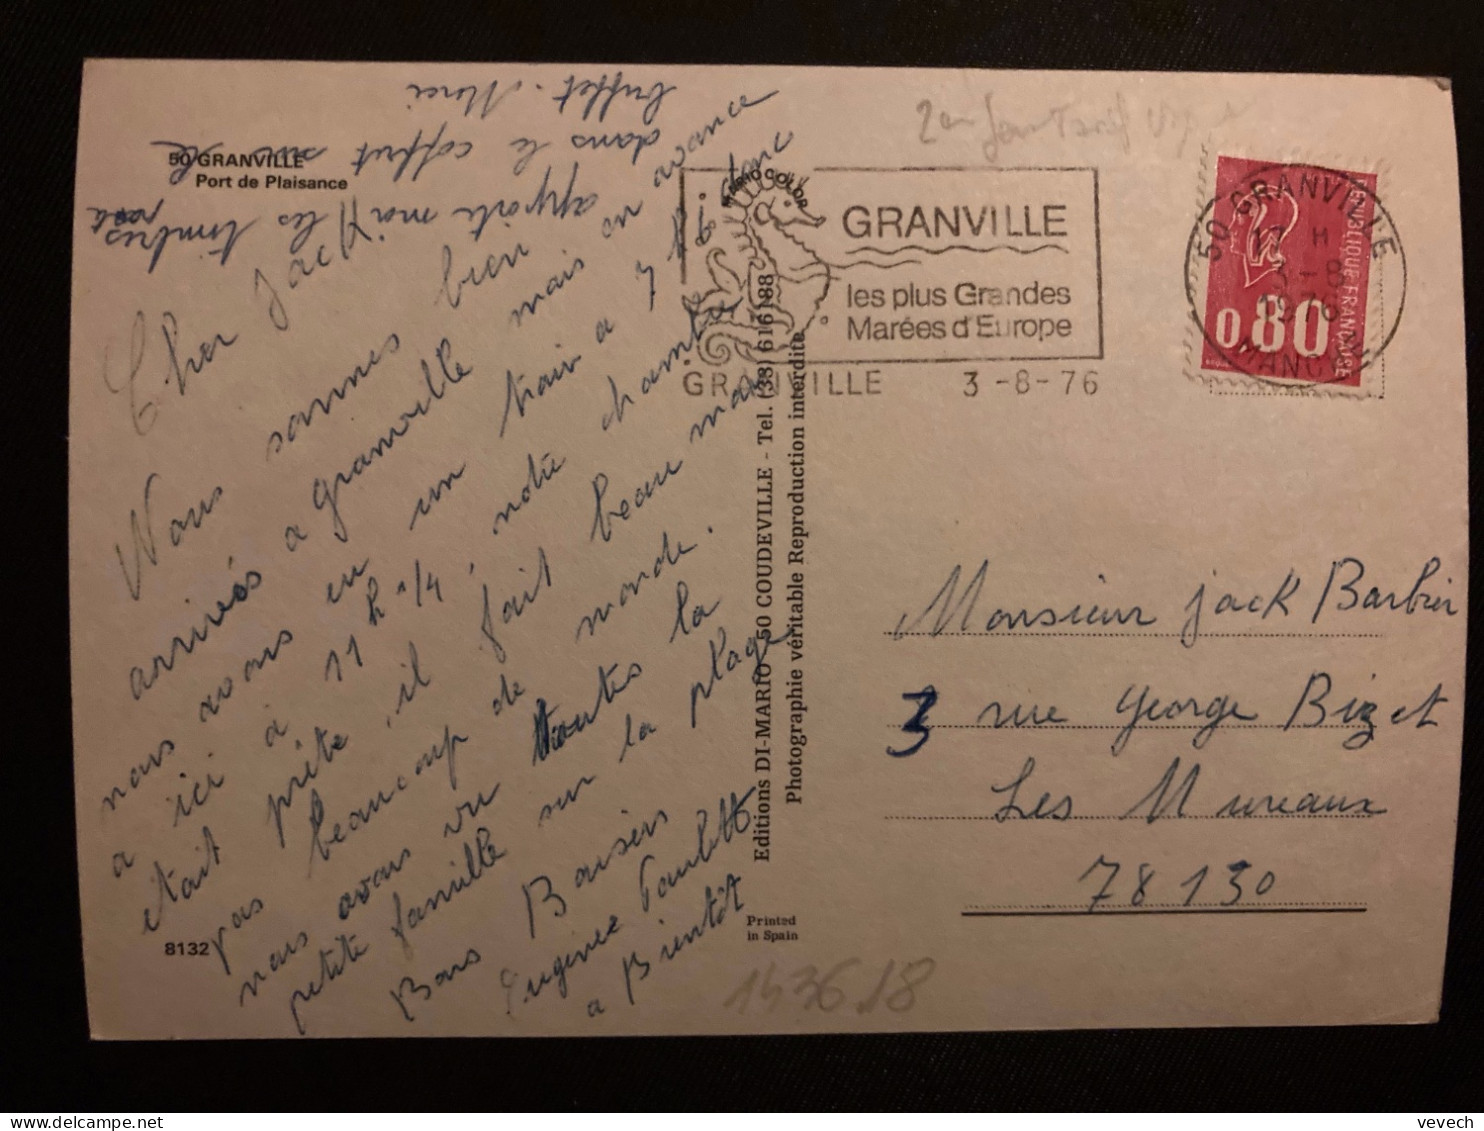 50 GRANVILLE
Port de Plaisance
Cher Jack
Nous sommes bien
arrivés a granville mais en avance
nous avons eu un train a 7 h donc
a ici à 11 h 1/4, notre chambre
était prête, il fait beau mais
pas beaucoup de monde.
nous avons vu toutes la
petite famille sur la plage
Bons Baisers
Eugénie Paulette
a Bientôt
apporte moi les timbres
dans le coffret sur le
buffet. Merci
8132
Editions DI-MARIO - 50 COUDEVILLE - Tel. (33) 616188
Photographie véritable Reproduction interdite
MARIO COLOR
Printed
in Spain
143618
2en Jour Tarif
GRANVILLE
les plus Grandes
Marées d'Europe
GRANVILLE 3-8-76
50 GRANVILLE
17 H
3-8
1976
MANCHE
REPUBLIQUE·FRANÇAISE
0,80
Monsieur Jack Barbier
3 rue George Bizet
Les Mureaux
78130
vevech